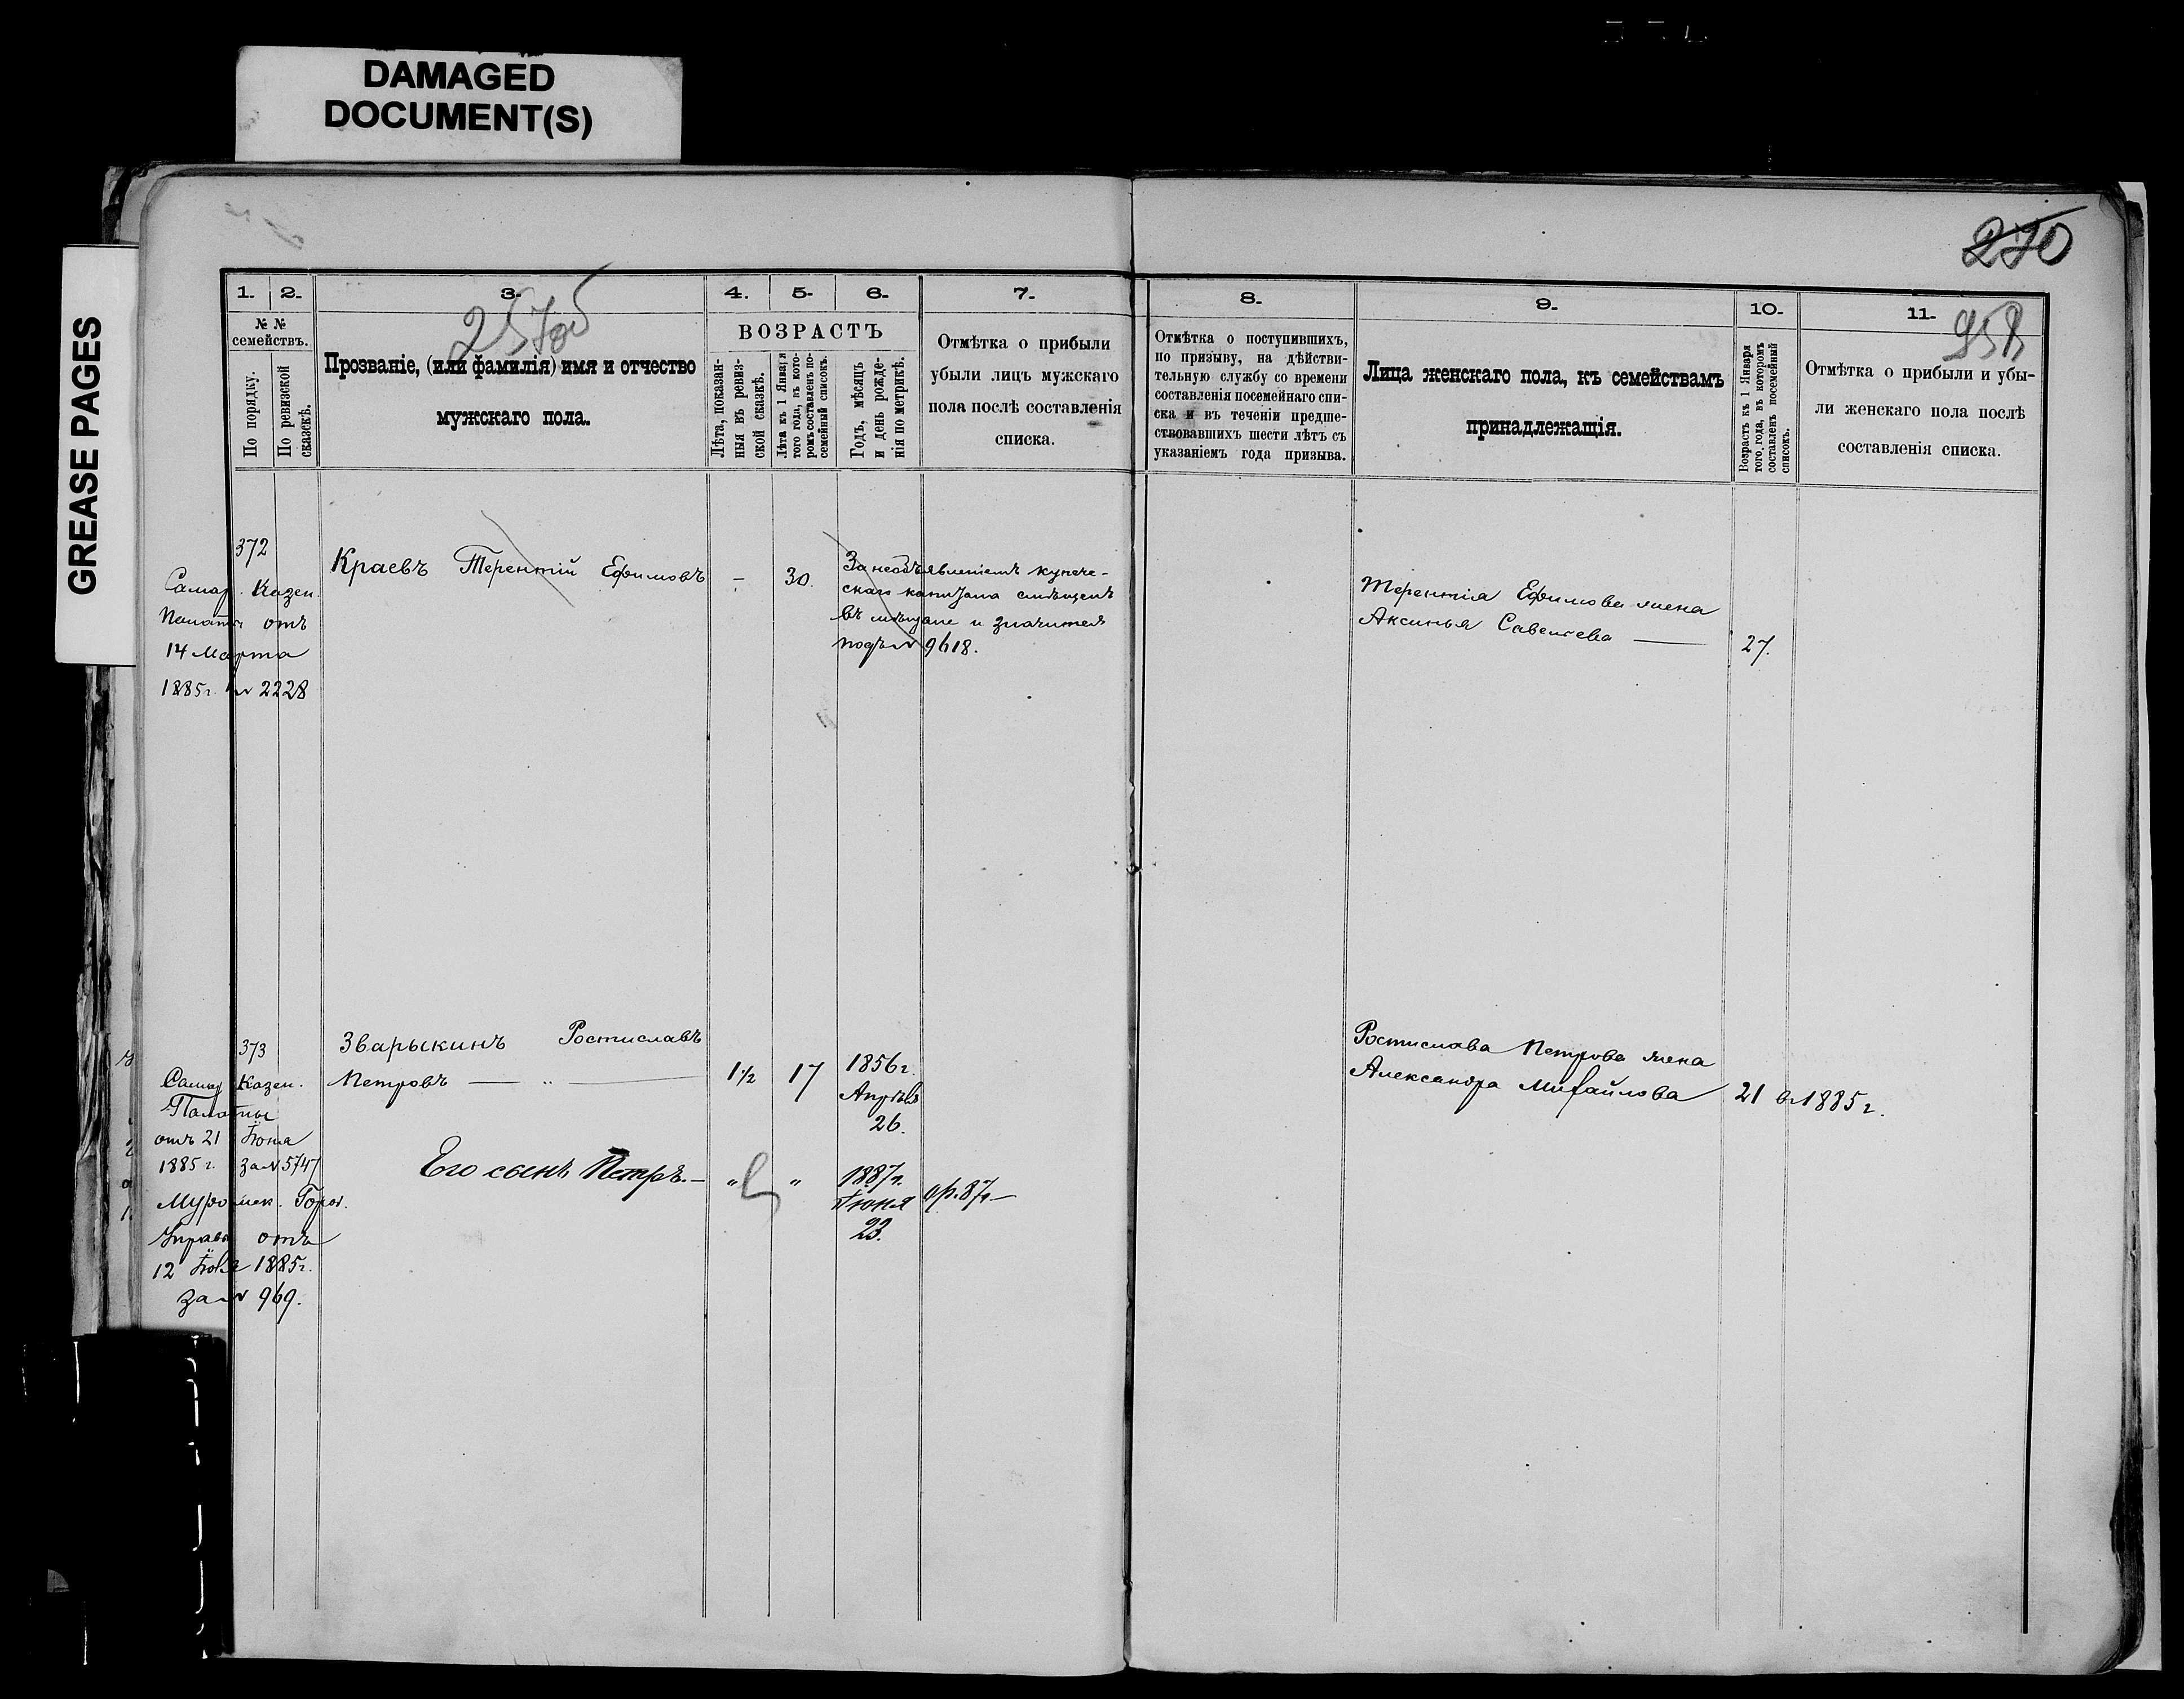 DAMAGED
DOCUMENT(S)
GREASE PAGES
270
1. 2. 3. 4. 5. 6. 7. 8. 9. 10. 11.
№ №
семействъ.
По порядку.
По ревизской
сказскѣ.
Прозваніе, (или фамилія) имя и отчество
мужскаго пола.
ВОЗРАСТЪ
Лѣта, показан-
ныя въ ревиз-
ской сказкѣ.
Лѣта къ 1 Января
того года, въ кото-
ромъ составленъ по-
семейный списокъ.
Годъ, мѣсяцъ
и день рожде-
нія по метрикѣ.
Отмѣтка о прибыли
убыли лицъ мужскаго
пола послѣ составленія
списка.
Отмѣтка о поступившихъ,
по призыву, на дѣйстви-
тельную службу со времени
составленія посемейнаго спи-
ска и въ теченіи предше-
ствовавшихъ шести лѣтъ съ
указаніемъ года призыва.
Лица женскаго пола, къ семействамъ
принадлежащія.
Возрастъ къ 1 Января
того, года, въ которомъ
составленъ посемейный
списокъ.
Отмѣтка о прибыли и убы-
ли женскаго пола послѣ
составленія списка.
372
Самар. Казен.
Палаты отъ
14 Марта
1885г. № 2228
Краевъ Терентій Ефимовъ - 30.
За необъявленіемъ купече-
скаго капитала смѣщенъ
въ мѣщане и значится
подъ № 9618.
Терентія Ефимова жена
Аксинья Савельева — 27.
373
Самар Казен.
Палаты
отъ 21 Іюня
1885 г. за № 5747
Муромск. Город.
Управы отъ
12 Іюня 1885г.
за № 969.
Зварыкинъ Ростиславъ
Петровъ — „ — 1½ 17
1856г.
Апрѣля
26.
Его сынъ Петръ. — „ „
1887г.
Іюня
23.
Ростислава Петрова жена
Александра Михайлова 21 в 1885 г.